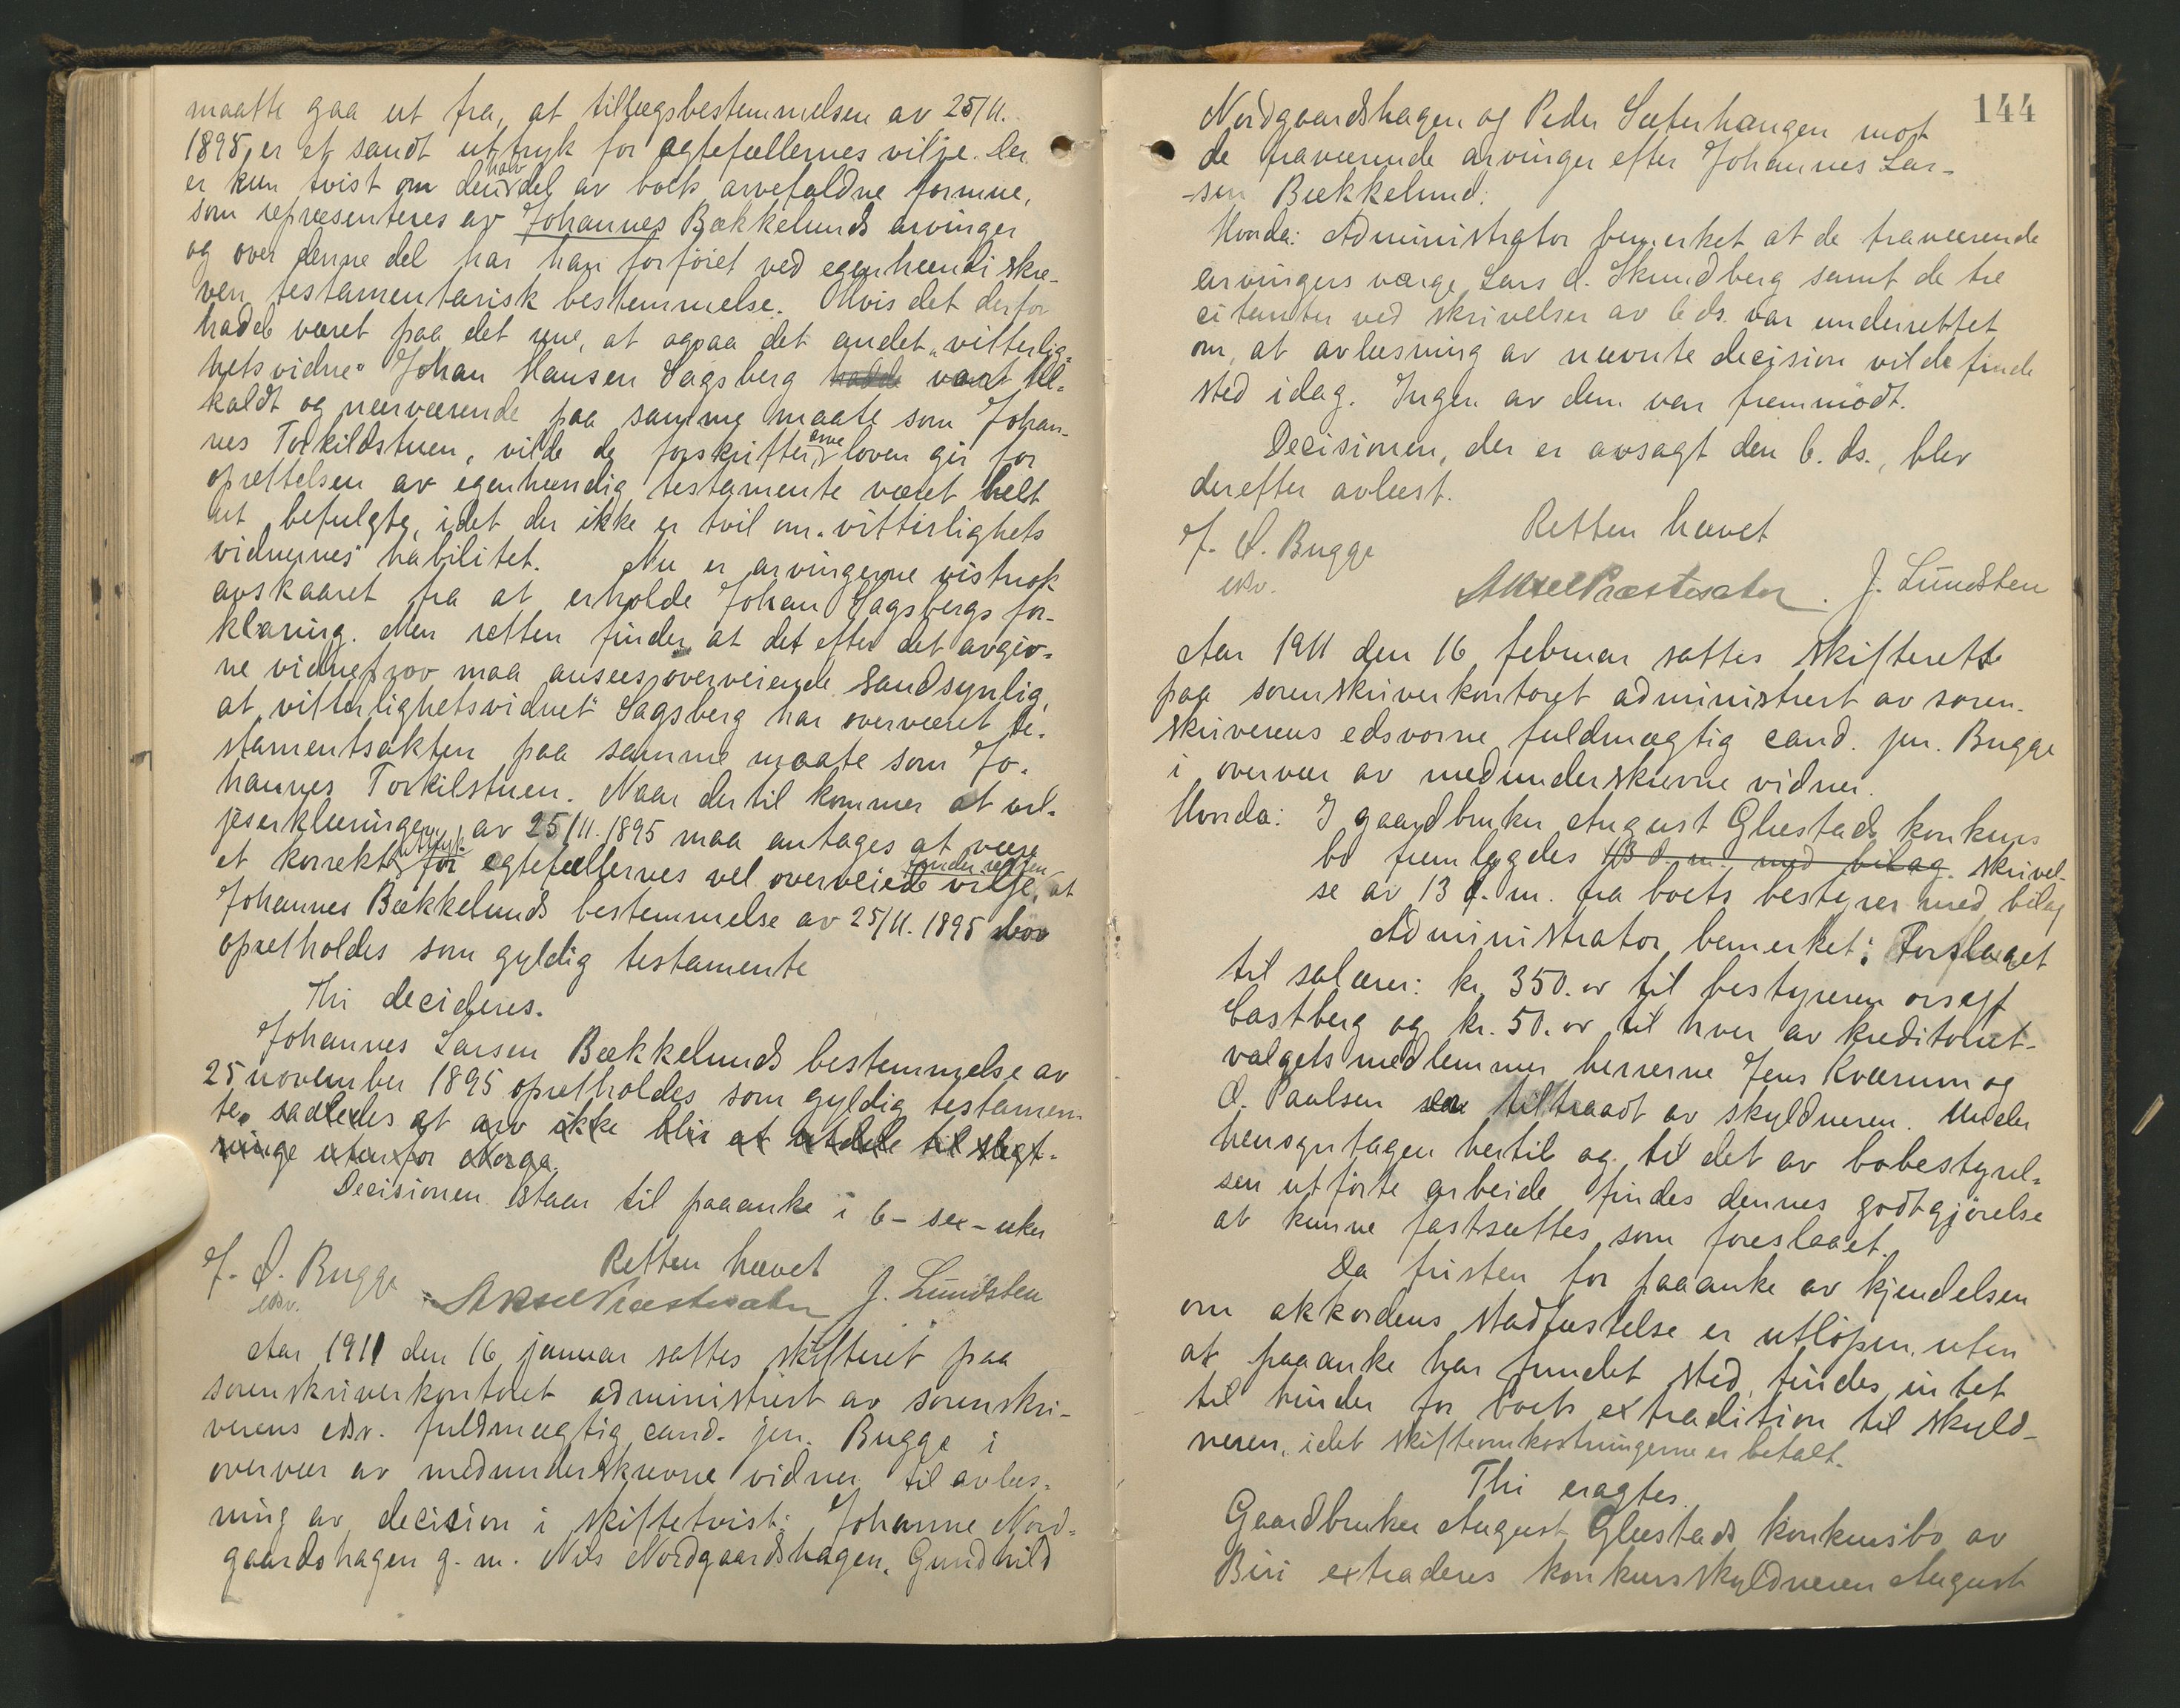 maatte gaa ut fra, at tillægsbestemmelsen av 25/11.
1895, er et sandt uttryk for egtefællernes vilje. Der
er kun tvist om den halvdel av boets arvefaldne formue,
som repræsenteres av Johannes Bækkelunds arvinger
og over denne del har han forföiet ved egenhændi skre-
ven testamentarisk bestemmelse. Hvis det derfor
hadde været paa det rene, at ogsaa det andet "vitterlig-
hetsvidne" Johan Hansen Sagsberg hadde været til-
kaldt og nærværende paa samme maate som Johan-
nes Torkildstuen, vilde de forskrifter arveloven gir for
oprettelsen av egenhændig testamente været helt
ut befulgte, idet der ikke er tvil om "vitterlighets
vidnernes" habilitet. Nu er arvingerne vistnok
avskaaret fra at erholde Johan Sagsbergs for-
klaring. Men retten finder at det efter det avgiv-
ne vidneprov maa ansees overveiende sandsynlig,
at "vitterlighetsvidnet" Sagsberg har overværet te-
stamentsakten paa samme maate som Jo-
hannes Torkilstuen. Naar dertil kommer at vil-
jeserklæringen av 25/11. 1895 maa antages at være
et korrekt uttryk for egtefællernes vel overveiede vilje, finder retten at
Johannes Bækkelunds bestemmelse av 25/11. 1895 bör
opretholdes som gyldig testamente
Thi decideres.
Johannes Larsen Bækkelunds bestemmelse av
25 november 1895 opretholdes som gyldig testamen-
te. saaledes at arv ikke blir at utdele til slegt-
ninge utenfor Norge.
Decisionen staar til paaanke i 6 - sex - uker
Retten hævet
J. D. Bugge
edsv.
Aksel Præstesæter J. Lundsten
Aar 1911 den 16 januar sattes skifteret paa
sorenskriverkontoret administrert av sorenskri-
verens edsv. fuldmægtig cand. jur. Bugge i
overvær av medunderskrevne vidner til avlæs-
ning av decision i skiftetvist: Johanne Nord-
gaardshagen g. m. Nils Nordgaardshagen, Gundhild
144
Nordgaardshagen og Peder Sæterhaugen mot
de fraværende arvinger efter Johannes Lar-
-sen Bækkelund.
Hvorda: Administrator bemerket at de fraværende
arvingers værge Lars A. Skundberg samt de tre
citanter ved skrivelser av 6 ds. var underrettet
om, at avlæsning av nævnte decision vilde finde
sted idag. Ingen av dem var fremmödt.
Decisionen, der er avsagt den 6. ds., blev
derefter avlæst.
Retten hævet
J. D. Bugge
edsv.
Aksel Præstesæter. J. Lundsten
Aar 1911 den 16 februar sattes skifterett
paa sorenskriverkontoret administrert av soren-
skriverens edsvorne fuldmægtig cand. jur. Bugge
i overvær av medunderskrevne vidner.
Hvorda: I gaardbruker August Gluestads konkurs
bo fremlagdes 13 d. m. med bilag. skrivel-
se av 13 d. m. fra boets bestyrer med bilag
Administrator bemerket: Forslaget
til salærer: kr. 350.00 til bestyreren orsagf
Castberg og kr. 50.00 til hver av kreditorut-
valgets medlemmer herrerne Jens Kværum og
O. Paulsen er tiltraadt av skyldneren. Under
hensyntagen hertil og til det av bobestyrel-
sen utförte arbeide findes dennes godtgjörelse
at kunne fastsættes som foreslaaet.
Da fristen for paaanke av kjendelsen
om akkordens stadfæstelse er utlöpen, uten
at paaanke har fundet sted, findes intet
til hinder for boets extradition til skyld-
neren, idet skifteomkostningerne er betalt.
Thi eragtes.
Gaardbruker August Gluestads konkursbo av
Biri extraderes konkursskyldneren August